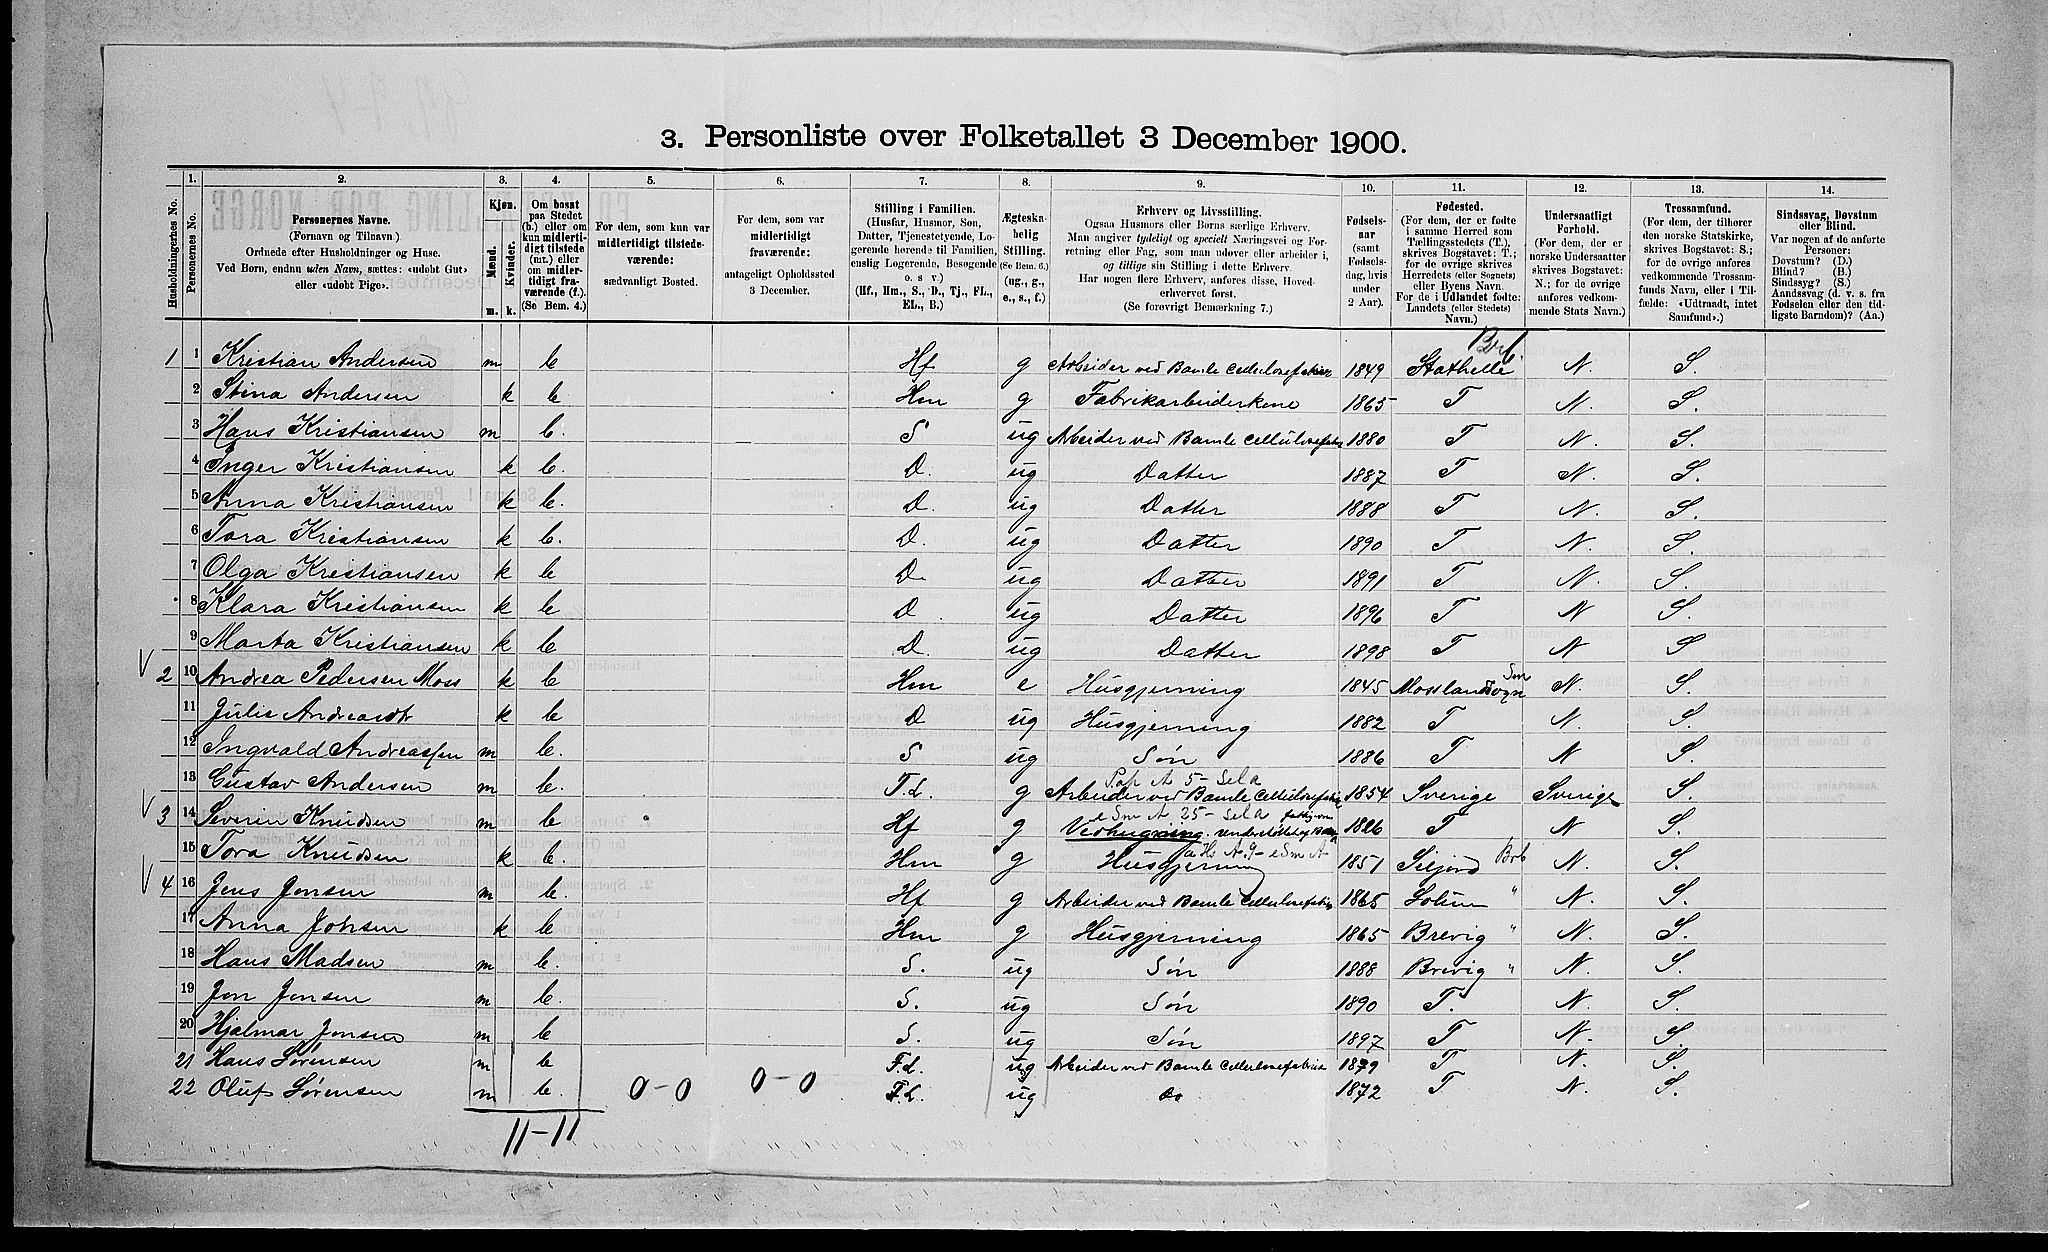 3. Personliste over Folketallet 3 December 1900.
Husholdningernes No.
1. Personernes No.
2. Personernes Navne. (Fornavn og Tilnavn) Ordnede efter Husholdninger og Huse. Ved Børn, endnu uden Navn, sættes: «udøbt Gut» eller «udøbt Pige».
3. Kjøn. Mænd. m. Kvinder. k.
4. Om bosat paa Stedet (b.) eller om kun midlertidigt tilstede (mt.) eller om midlertidigt fraværende (f.) (Se Bem. 4.)
5. For dem, som kun var midlertidigt tilstedeværende: sædvanligt Bosted.
6. For dem, som var midlertidigt fraværende: antageligt Opholdssted 3 December.
7. Stilling i Familien. (Husfar, Husmor, Søn, Datter, Tjenestetyende, Logerende hørende til Familien, enslig Logerende, Besøgende o. s v.) (Hf., Hm., S., D., Tj., FL., EL., B.)
8. Ægteskabelig Stilling. (Se Bem. 6.) (ug., g., e., s., f.)
9. Erhverv og Livsstilling. Ogsaa Husmors eller Børns særlige Erhverv. Man angiver tydeligt og specielt Næringsvei og Forretning eller Fag, som man udøver eller arbeider i, og tillige sin Stilling i dette Erhverv. Har nogen flere Erhverv, anføres disse, Hovederhvervet først. (Se forøvrigt Bemærkning 7.)
10. Fødselsaar (samt Fødselsdag, hvis under 2 Aar).
11. Fødested. (For dem, der er fødte i samme Herred som Tællingsstedets (T.), skrives Bogstavet: T.; for de øvrige skrives Herredets (eller Sognets) eller Byens Navn. For de i Udlandet fødte: Landets (eller Stedets) Navn.)
12. Undersaatligt Forhold. (For dem, der er norske Undersaatter skrives Bogstavet: N.; for de øvrige anføres vedkommende Stats Navn.)
13. Trossamfund. (For dem, der tilhører den norske Statskirke, skrives Bogstavet: S.; for de øvrige anføres vedkommende Trossamfunds Navn, eller i Tilfælde: «Udtraadt, intet Samfund».)
14. Sindssvag, Døvstum eller Blind. Var nogen af de anførte Personer: Døvstum? (D.) Blind? (B.) Sindssyg? (S.) Aandssvag (d. v. s. fra Fødselen eller den tidligste Barndom)? (Aa.)
1 1 Kristian Andersen m b Hf g Arbeider ved Bamle Cellulosefabrik 1849 Stathelle Brb. N. S.
2 Stina Andersen k b Hm g Fabrikarbeiderkone 1865 T N. S.
3 Hans Kristiansen m b. S ug Arbeider ved Bamle Cellulosefabr 1880 T N. S.
4 Inger Kristiansen k b. D. ug Datter 1887 T N. S.
5 Anna Kristiansen k b. D. ug Datter 1888 T N. S.
6 Tora Kristiansen k b. D. ug Datter 1890 T N. S.
7 Olga Kristiansen k b D. ug Datter 1891 T N. S.
8 Klara Kristiansen k b D ug Datter 1896 T N S.
9 Marta Kristiansen k b D. ug Datter 1898 T N S
V 2 10 Andrea Pedersen Moss k b Hm e Husgjerning 1845 Mosslandsogn Sm N. S.
11 Julie Andreasdt k b D ug Husgjerning 1882 T N. S.
12 Ingvald Andreassen m b. S ug Søn 1886 T N S.
13 Gustav Andersen m b. F.L. g Arbeider ved Bamle Cellulosefabrik 1854 Sverige Sverige S.
V 3 14 Severin Knudsen m b Hf g Vedhugning. 1826 T N S.
15 Tora Knudsen k b. Hm g Husgjerning 1851 Brb N. S.
V 4 16 Jens Jensen m b. Hf g Arbeider ved Bamle Cellulosefabrik 1865 Solum " N. S.
17 Anna Johsen k b Hm g Husgjerning 1865 Brevig " N. S.
18 Hans Madsen m b. S. ug Søn 1888 Brevig " N. S.
19 Jon Jensen m b. S. ug Søn 1890 T. N S.
20 Hjalmar Jensen m b S. ug Søn 1897 T N. S.
21 Hans Sørensen m b F.L. ug Arbeider ved Bamle Cellulosefabrik 1879 T N. S.
22 Oluf Sørensen m b. 0-0 0-0 F.L. ug do 1872 T N. S.
11-11